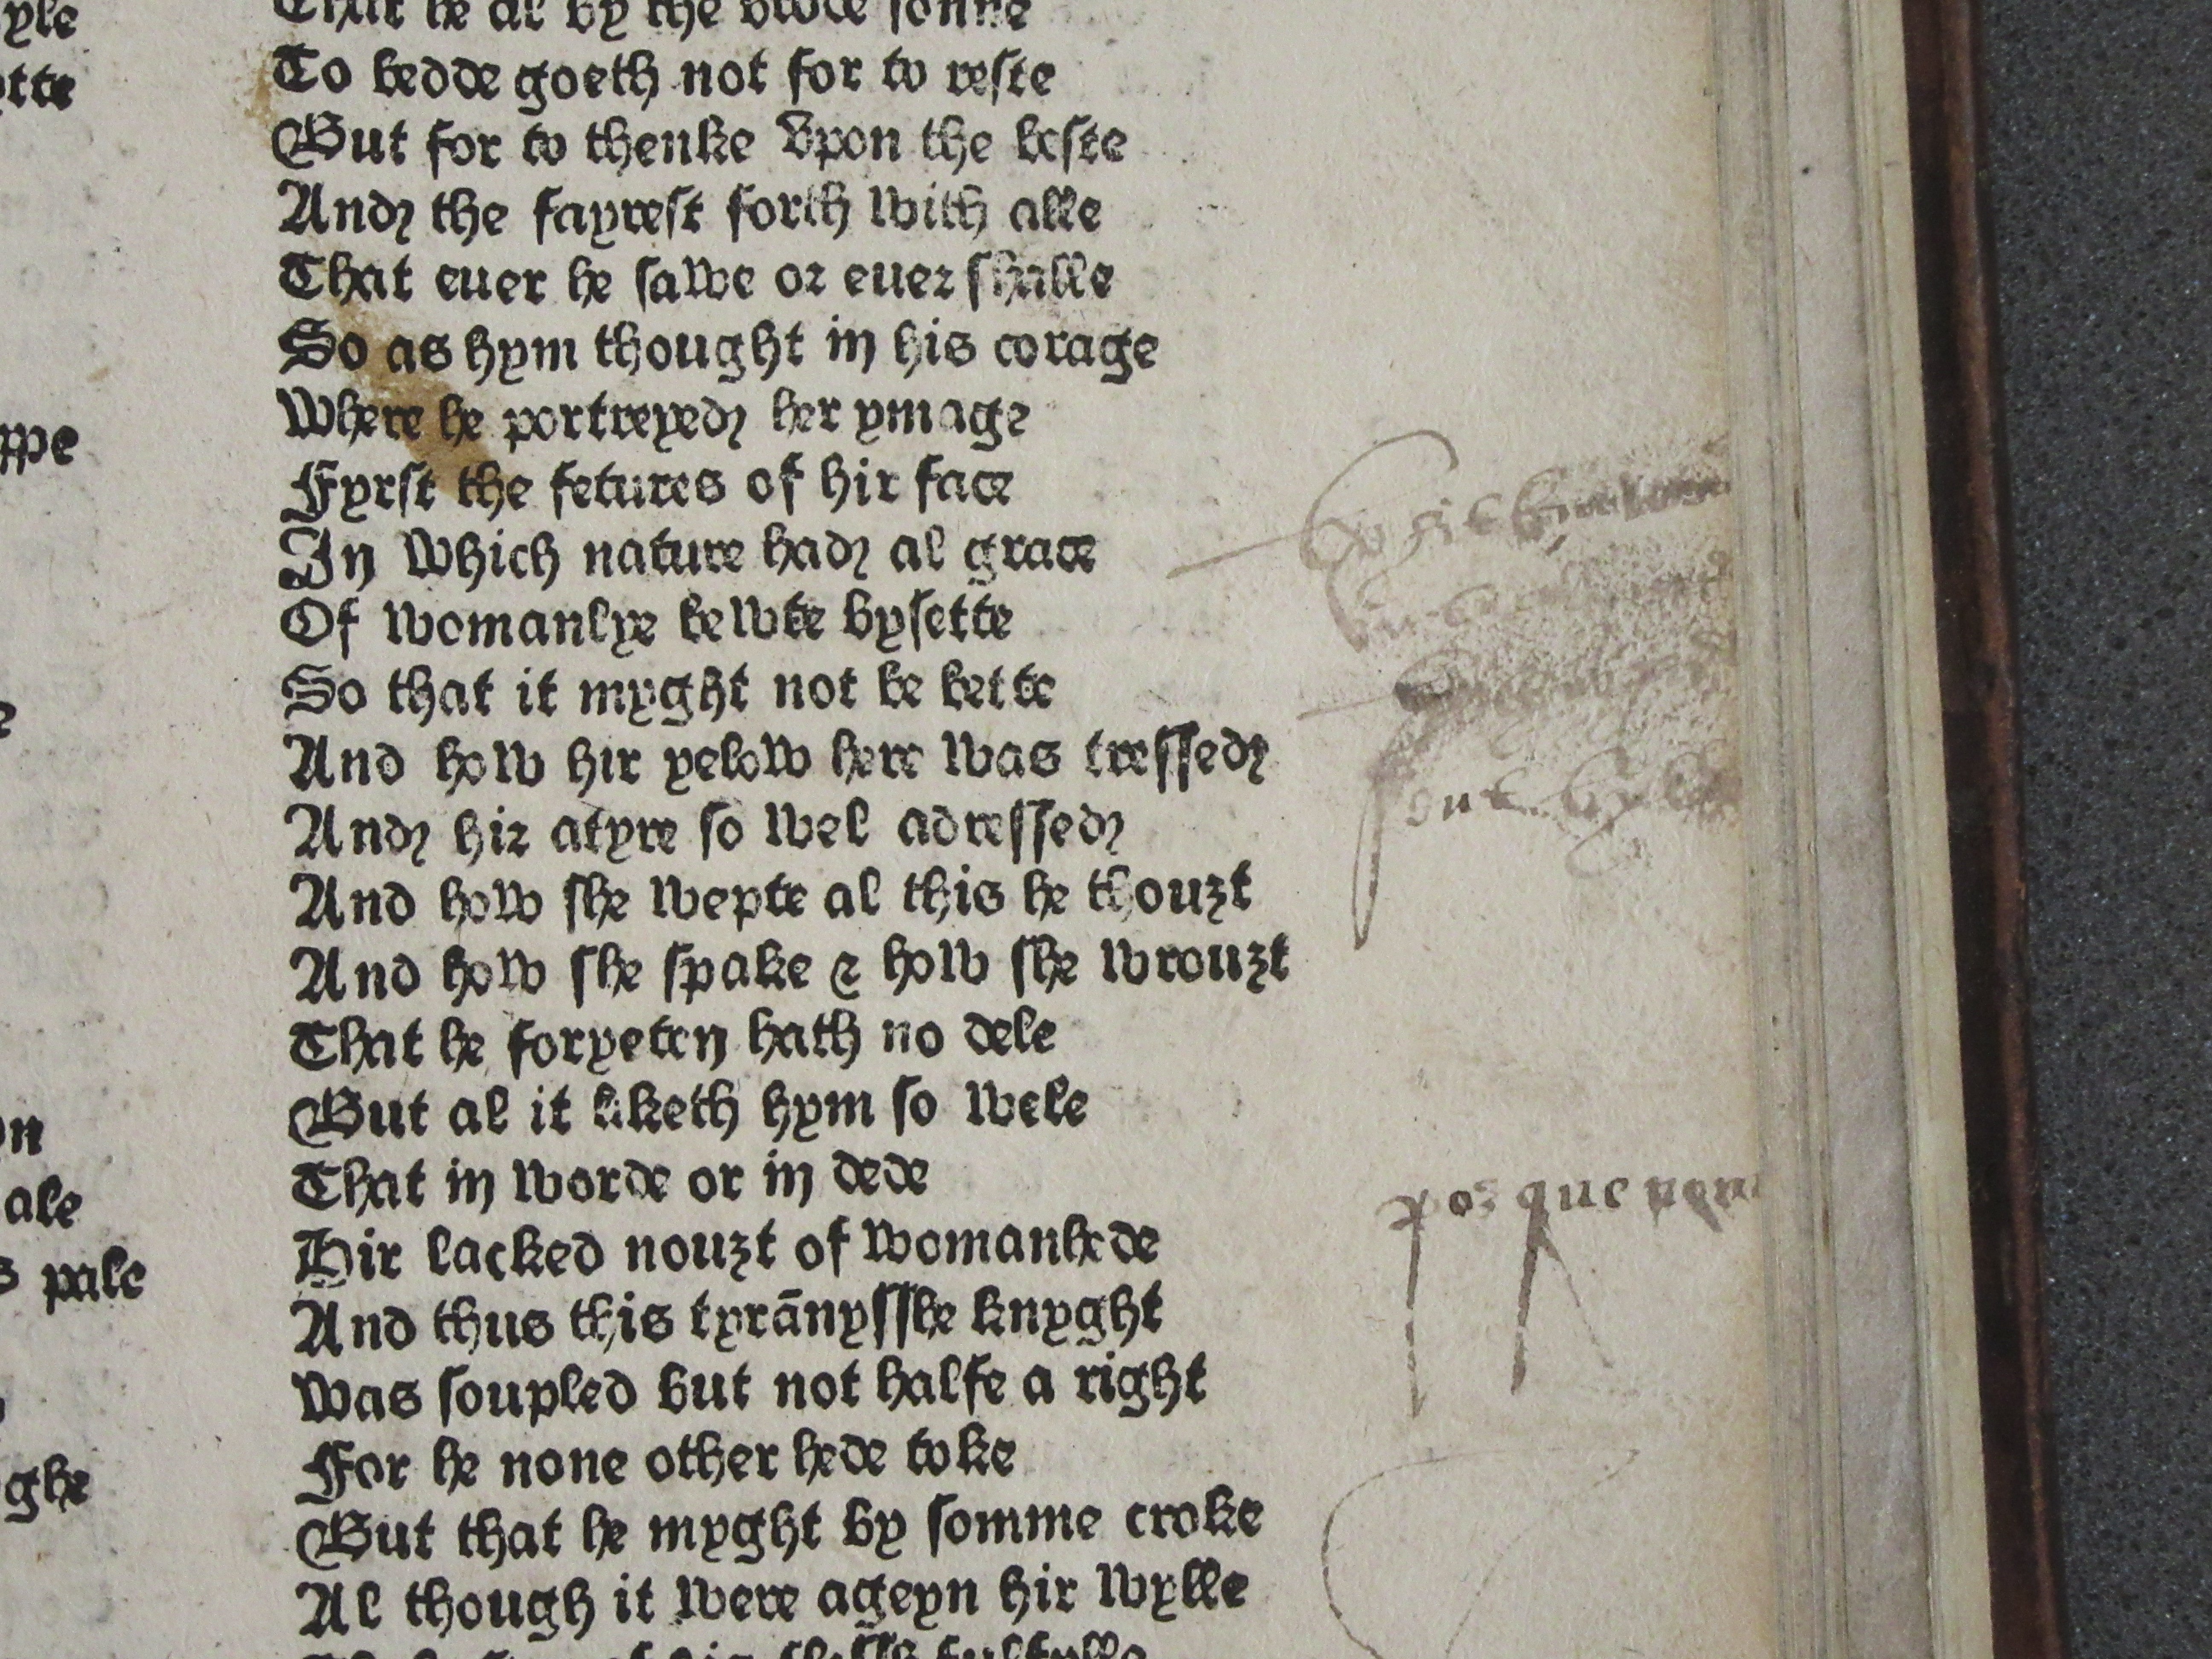 yle
tte
ppe
on
ale
s pale
ghe
That he al by the bedde sonne
To bedde goeth not for to reste
But for to thenke vpon the beste
And the fayrest forth with alle
That euer he sawe or euer shalle
So as hym thought in his corage
Where he portreyed her ymage
Fyrst the fetures of hir face
In which nature had al grace
Of womanlye bewte bysette
So that it myght not be bette
And how hir yelow here was tressed
And hir atyre so wel adressed
And how she wepte al this he thouȝt
And how she spake & how she wrouȝt
That he foryeten hath no dele
But al it liketh hym so wele
That in worde or in dede
Hir lacked nouȝt of womanhede
And thus this tyrānysshe knyght
Was soupled but not halfe a right
For he none other hede toke
But that he myght by somme croke
Al though it were ageyn hir wylle
por que